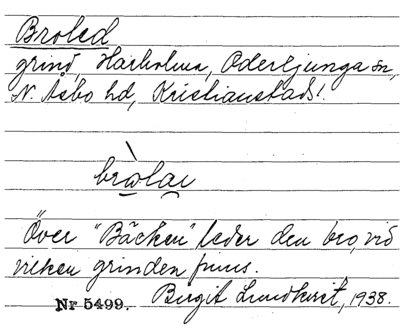 Broled
grind, Harholma, Oderljunga sn,
N. Åsbo hd, Kristianstads l.
Över "Bäcken" leder den bro, vid
vilken grinden finns.
Nr 5499. Birgit Lundkvist, 1938.